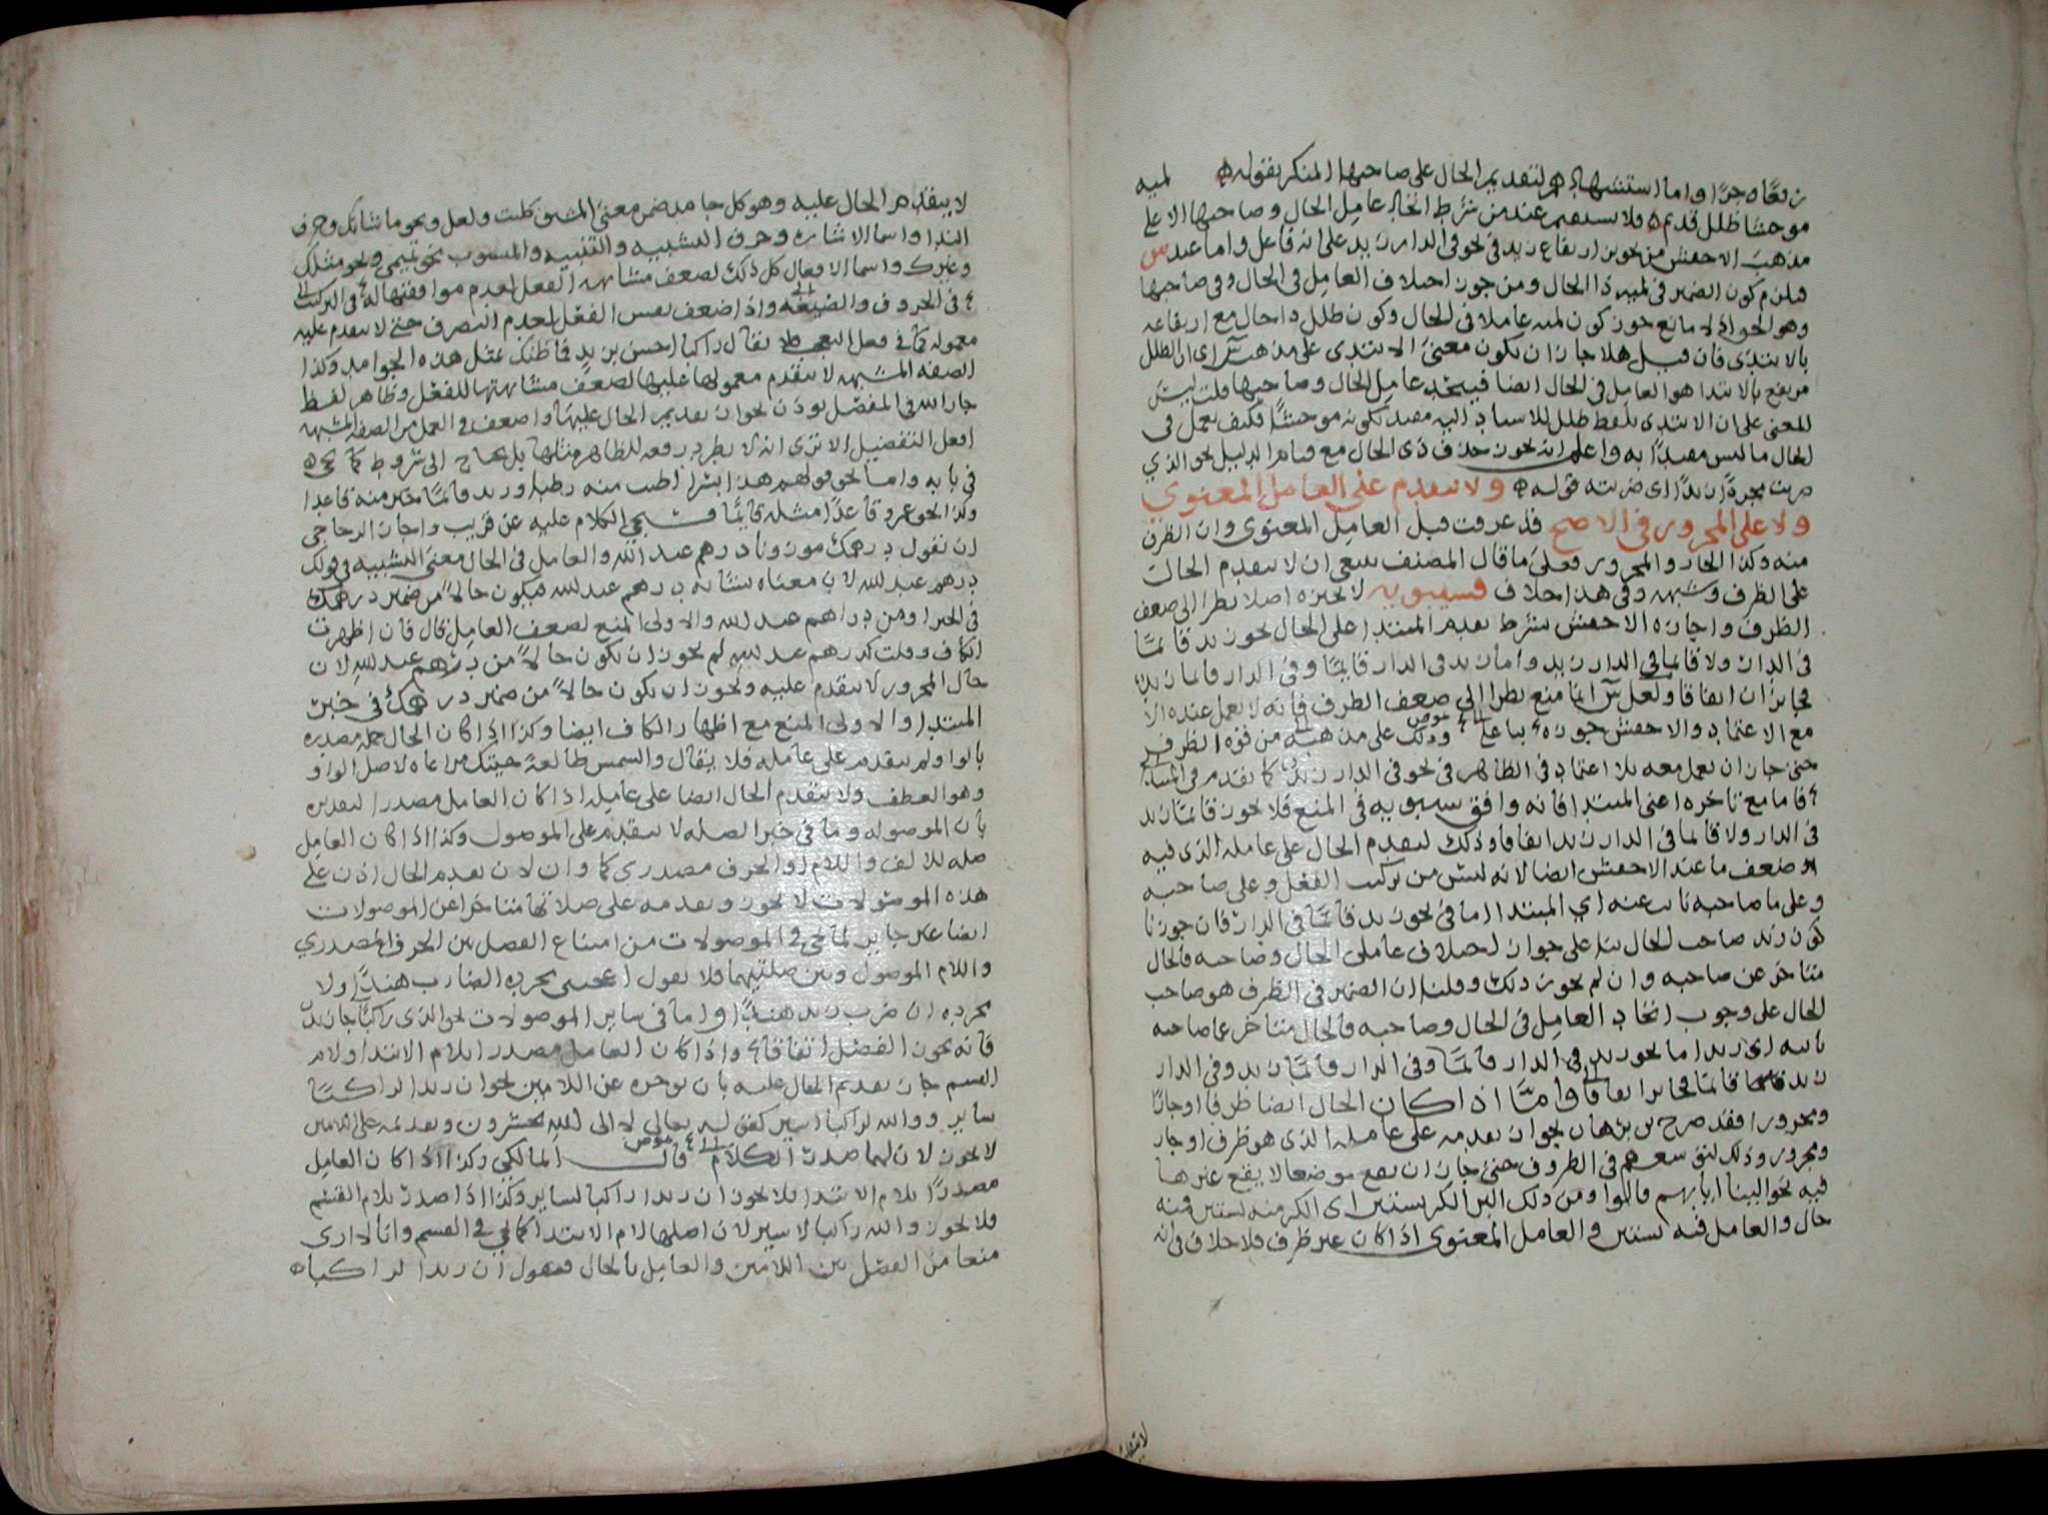 زيعاه جرا واما استشهادهم لتقديم الحال على صاحبها المنكر بقوله لميه
موحشا طلل قديم فلا يستقيم عند من شرط اتحاد عامل الحال وصاحبها الا على
مذهب الاخفش من تجويز ارتفاع زيد في نحو في الدار زيد على انه فاعل واما عند س
فلزم كون الضمير في لميه ذا الحال ومن جوز اختلاف العامل في الحال وفي صاحبها
وهو الحق اذ لا مانع جوز كون لميه عاملا في الحال وكون طلل ذا حال مع ارتفاعه
بالابتدى فان قيل هلا جاز ان يكون معنى الابتدى على مذهب س اى ان الطلل
مرتفع بالابتدا هو العامل في الحال ايضا فيتحد عامل الحال وصاحبها قلت ليس
المعنى على ان الابتدى بلفظ طلل للاسناد اليه مقيد بكونه موحشا فكيف يعمل في
الحال ما ليس مقيدا به واعلم انه يجوز حذف ذى الحال مع قيام الدليل نحو الذي
ضربت مجردا زيد اى ضربته قوله ولا يتقدم على العامل المعنوي
ولا على المجرور في الاصح قد عرفت قبل العامل المعنوى وان الظرف
منه وكذا الجار والمجرور فعلى ما قال المصنف ينبغى ان لا يتقدم الحال
على الظرف وشبهه وفي هذا خلاف فسيبويه لا يجيزه اصلا نظرا الى ضعف
الظرف واجازه الاخفش بشرط تقديم المبتدا على الحال نحو زيد قائما
في الدار ولا قائما في الدار زيد واما زيد في الدار قائما وفي الدار قائما زيد
فجائزان اتفاقا ولعل س انما منع نظرا الى ضعف الظرف فانه لا يعمل عنده الا
مع الاعتماد والاخفش جوزه بناء على وذلك على مذهبه من قوة الظرف
حتى جاز ان يعمل معه بلا اعتماد في الظاهر في نحو في الدار زيد كما تقدم في المبتدا
فاما مع تاخره اعنى المبتدا فانه وافق سيبويه في المنع فلا يجوز قائما زيد
في الدار ولا قائما في الدار زيد اتفاقا وذلك لتقدم الحال على عامله الذى فيه
ضعف ما عند الاخفش ايضا لانه ليس من تركيب الفعل وعلى صاحبه
وعلى ما صاحبه نائب عنه اي المبتدا اما في نحو زيد قائما في الدار فان جوزنا
كون زيد صاحب الحال بنا على جواز اختلاف عاملى الحال وصاحبه فالحال
متاخر عن صاحبه وان لم نجوز ذلك وقلنا ان الضمير في الظرف هو صاحب
الحال على وجوب اتحاد العامل في الحال وصاحبه فالحال متاخر عما صاحبه
نائبه اى زيدا ما نحو زيد في الدار قائما وفي الدار قائما زيد وفي الدار
زيد قائما فجائز اتفاقا واما اذا كان الحال ايضا ظرفا او جارا
ومجرورا فقد صرح بن برهان بجواز تقدمه على عامله الذى هو ظرف او جار
ومجرور وذلك لتوسعهم في الظروف حتى جاز ان تقع موضعا لا يقع غيرها
فيه نحو الينا ايابهم قالوا ومن ذلك البر الكر بستين اى الكر منه بستين فمنه
حال والعامل فيه بستين والعامل المعنوى اذا كان غير ظرف فلا خلاف في انه
لا يتقدم
لا يتقدم الحال عليه وهو كل جامد ضمن معنى المشتق كليت ولعل ونحو ما شانك وحرف
الندا واسما الاشاره وحرف التشبيه والتنبيه والمنسوب نحو تميمى ونحو مثلك
وغيرك واسما الافعال كل ذلك لضعف مشابهه الفعل لعدم موافقتها له في التركيب
في الحروف والصيغه واذا ضعف نفس الفعل لعدم التصرف حتى لا يتقدم عليه
معموله كما في فعل التعجب فلا يقال راكبا احسن بزيد فما ظنك بمثل هذه الجوامد وكذا
الصفه المشبهه لا يتقدم معمولها عليها لضعف مشابهتها للفعل وظاهر لفظ
جار الله في المفصل يوذن بجواز تقديم الحال عليها واضعف في العمل من الصفه المشبهه
افعل التفضيل الا ترى انه لا يطرد رفعه للظاهر مثلها بل يحتاج الى شروط كما يجى
في بابه واما نحو قولهم هذا بسرا اطيب منه رطبا وزيد قائما خير منه قاعدا
وكذا نحو عمرو قاعدا مثله قائما فسيجى الكلام عليه عن قريب واجاز الزجاجى
ان تقول درهمك موزونا درهم عبد الله والعامل في الحال معنى التشبيه في قولك
درهم عبد الله لان معناه يشابه درهم عبد الله فيكون حالا من ضمير درهمك
في الخبر او من دراهم عبد الله والاولى المنع لضعف العامل قال فان اظهرت
الكاف وقلت كدرهم عبد الله لم يجوز ان يكون حالا من درهم عبد الله لان
حال المجرور لا يتقدم عليه ويجوز ان يكون حالا من ضمير درهمك في خبر
المبتدا والاولى المنع مع اظهار الكاف ايضا وكذا اذا كان الحال جمله مصدره
بالواو لم يتقدم على عامله فلا يقال والشمس طالعة جيتك مراعاه لاصل الواو
وهو العطف ولا يتقدم الحال ايضا على عامله اذا كان العامل مصدرا لتقديره
بان الموصوله وما في خبر الصله لا يتقدم على الموصول وكذا اذا كان العامل
صله للالف واللام او الحرف مصدرى كما وان لان تقديم الحال اذن على
هذه الموصولات لا يجوز وتقدمه على صلاتها متاخرا عن الموصولات
ايضا غير جايز لما يجى في الموصولات من امتناع الفصل بين الحرف المصدري
واللام الموصول وبين صلتيهما فلا تقول اعجبنى مجرده الضارب هندا ولا
مجرده ان ضرب زيد هندا واما في ساير الموصولات نحو الذى راكبا جا زيد
فانه يجوز الفصل اتفاقا واذا كان العامل مصدرا بلام الابتدا ولام
القسم جاز تقديم الحال عليه بان يوخره عن اللامين نحو ان زيدا لراكبا
ساير ووالله لراكبا اسير كقوله تعالى لا لى الله تحشرون وتقديمه على اللامين
لا يجوز لان لهما صدر الكلام قال المالكي وكذا اذا كان العامل
مصدرا بلام الابتدا فلا يجوز ان زيدا راكبا لساير وكذا اذا صدر بلام القسم
فلا يجوز والله راكبا لاسير لان اصلها لام الابتدا كما يجى في القسم وانا لا ارى
منعا من الفصل بين اللامين والعامل بالحال فنقول ان زيدا لراكبا